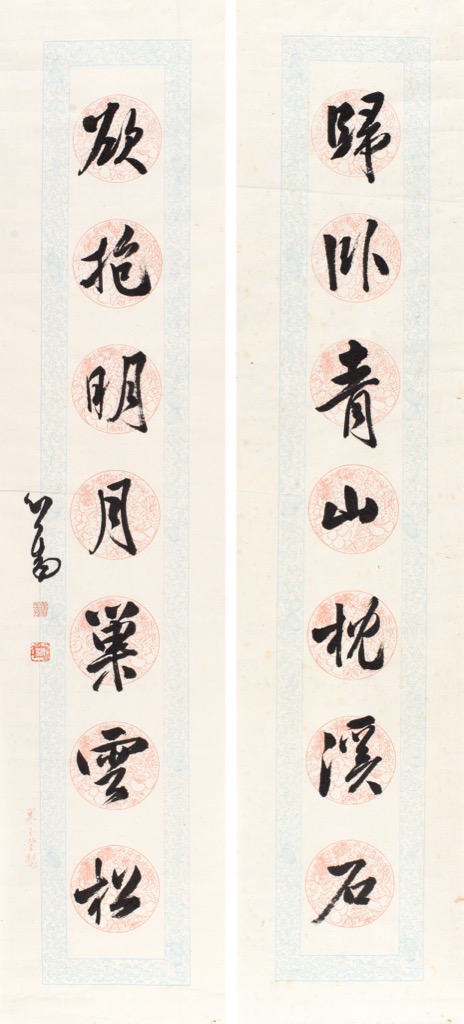 歸卧青山枕溪石
欲抱明月巢雲松
心畬